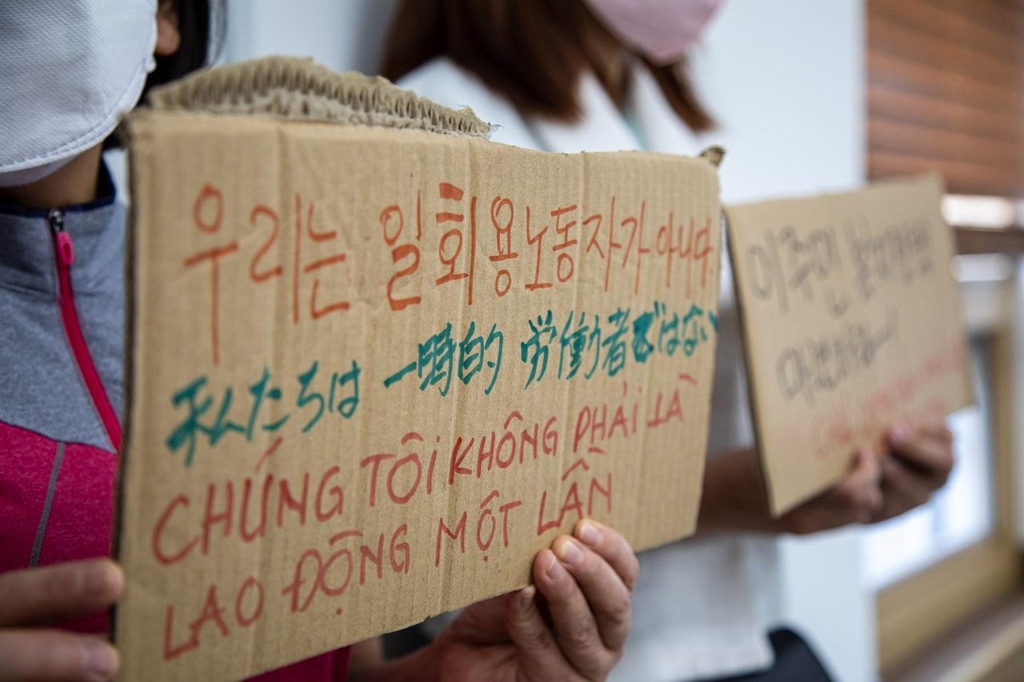 우리는 일회용노동자가 아니다.
私たちは 一時的 労働者ではない
CHÚNG TÔI KHÔNG PHẢI LÀ
LAO ĐỘNG MỘT LẦN
이주민